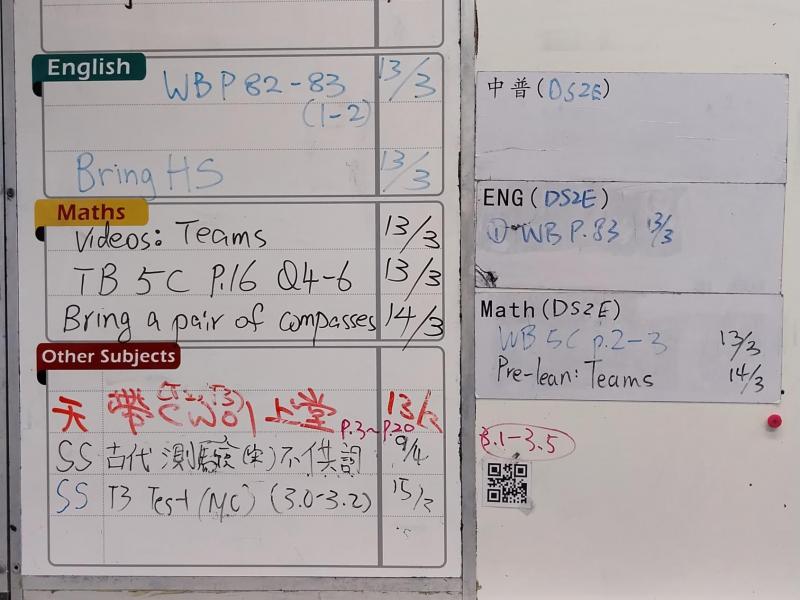 English
WB P 82-83 13/3
(1-2)
Bring HS 13/3
Maths
Videos: Teams 13/3
TB 5C P.16 Q4-6 13/3
Bring a pair of compasses 14/3
Other Subjects
帶 CW01 上堂 13/3
P.3~P.20
SS 古代測驗 不供詞 9/4
SS T3 Test (MC) (3.0-3.2) 15/3
中普(DS2E)
ENG(DS2E)
① WB P.83 13/3
Math(DS2E)
WB 5C p.2-3 13/3
Pre-lean: Teams 14/3
3.1-3.5